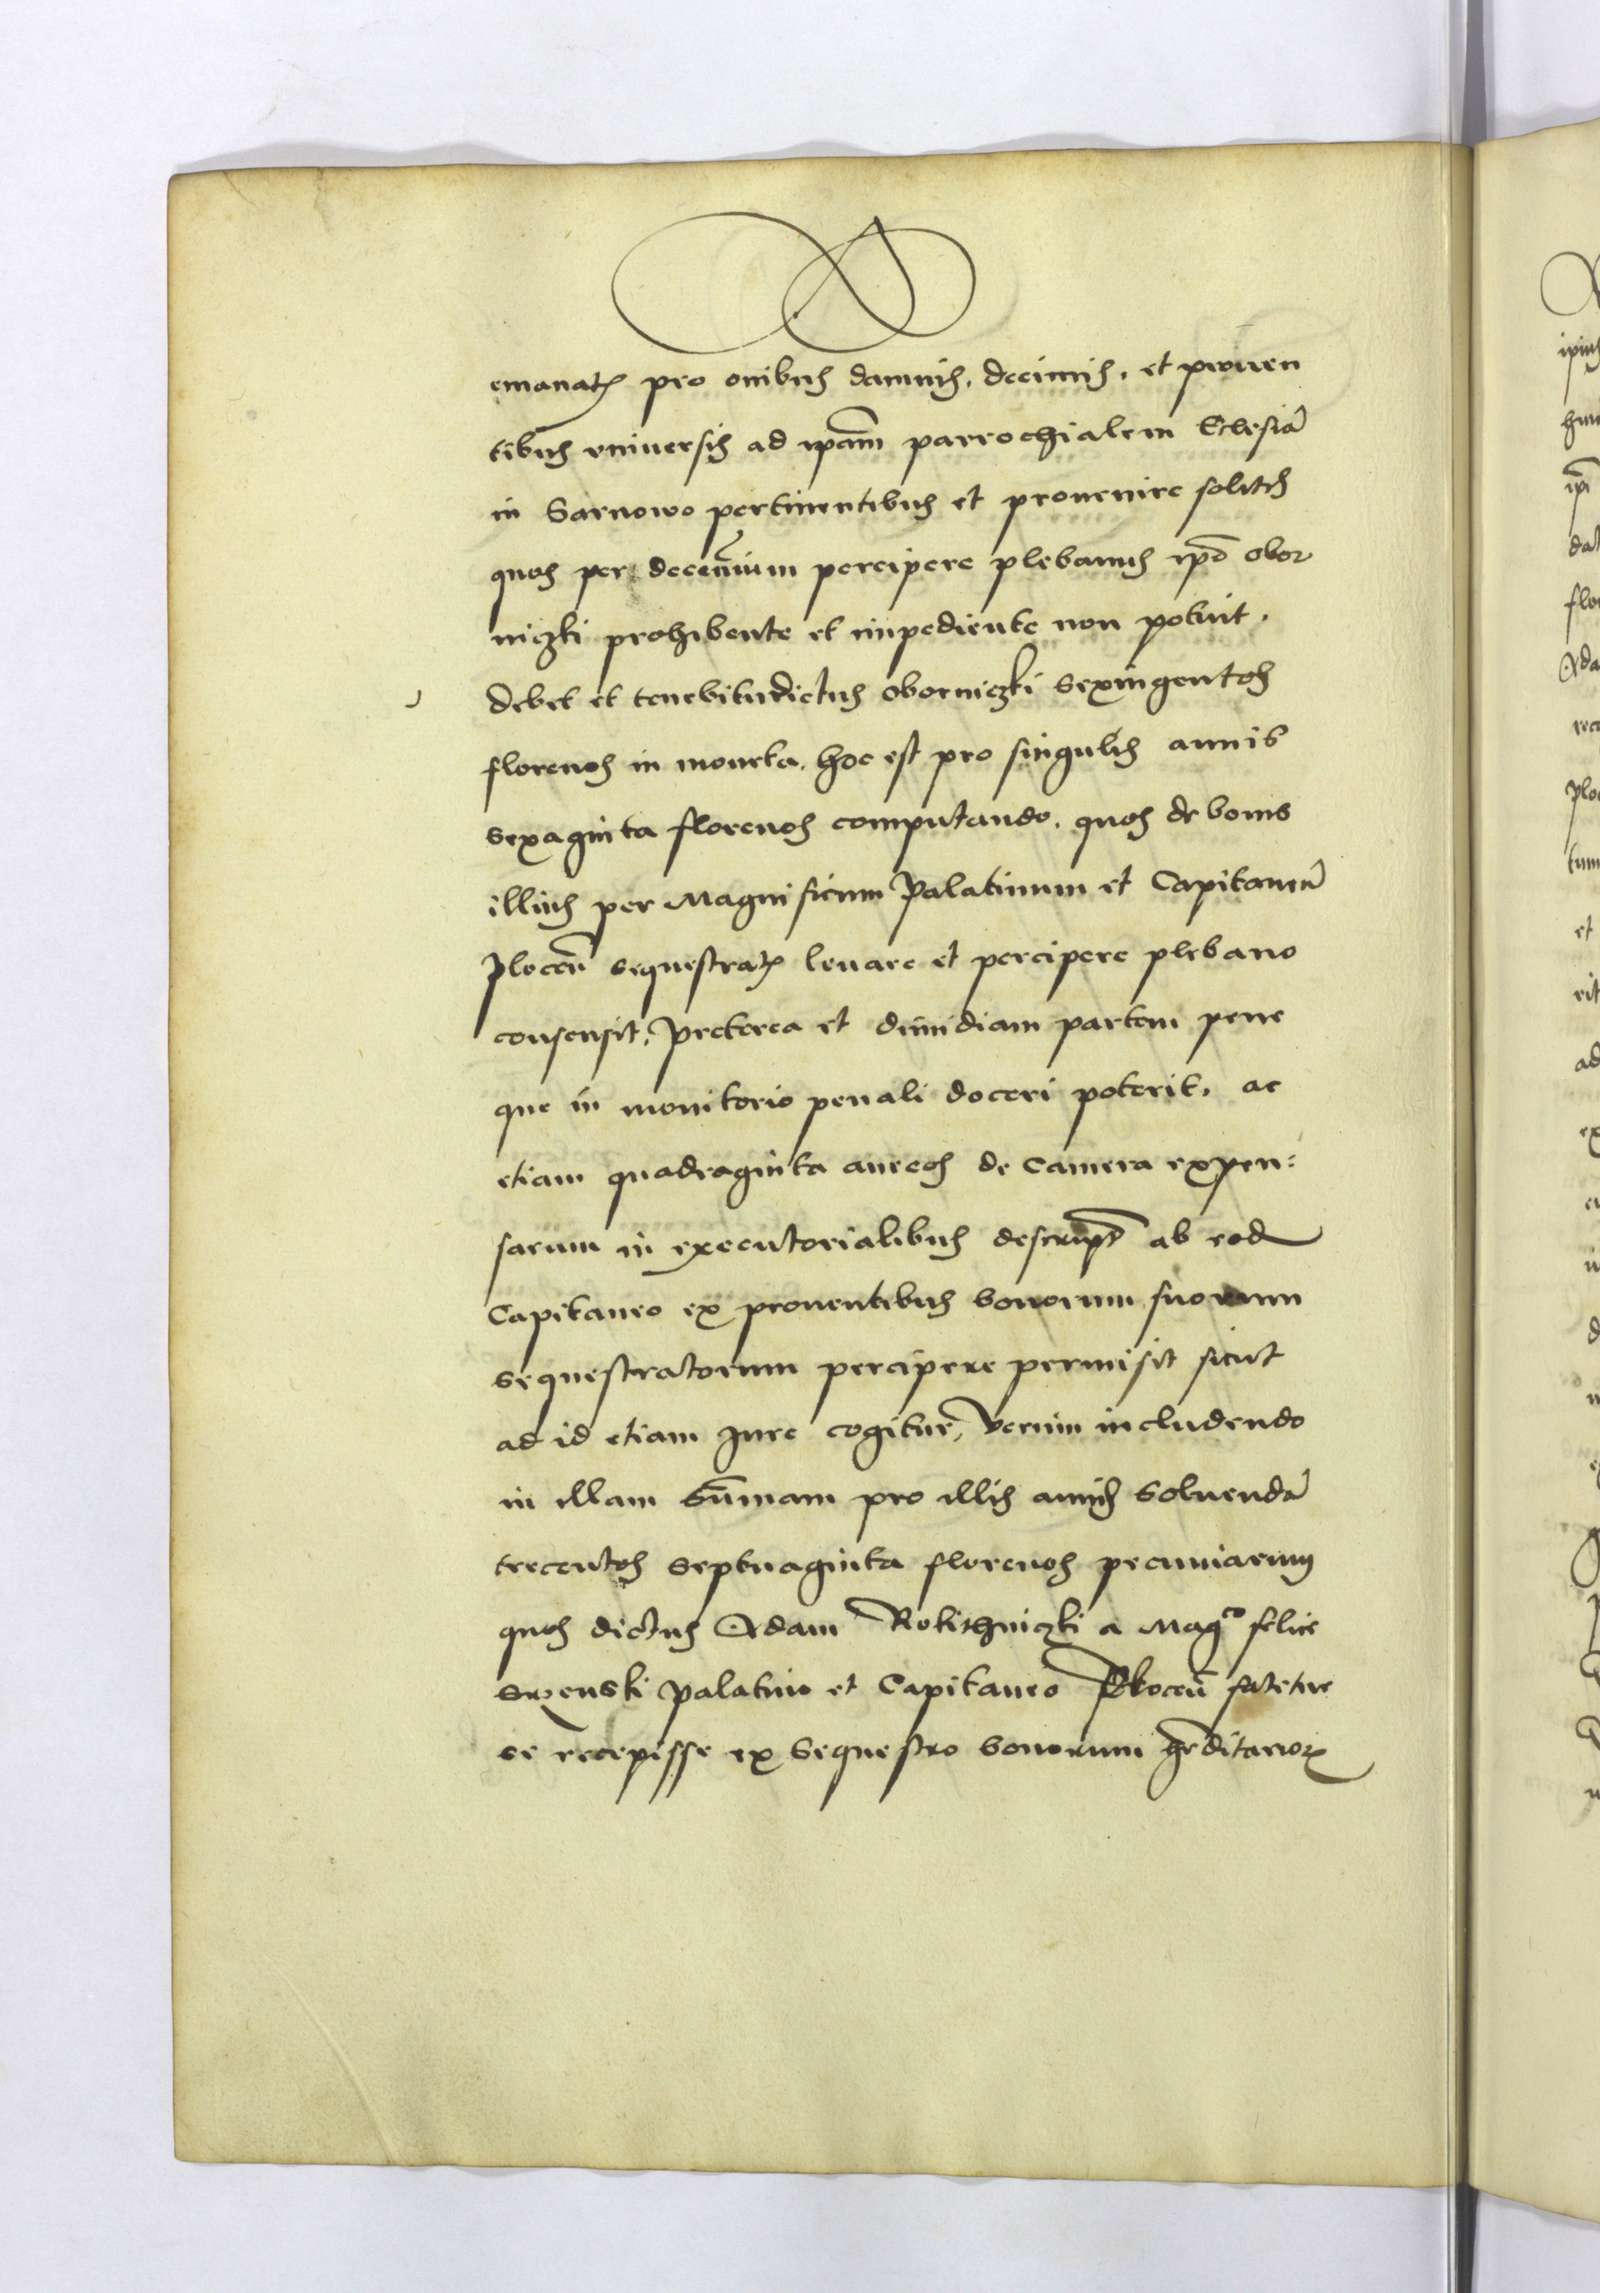 emanat₎ pro oni̅bus damnis, decimis, et prouen
tibus vniuersis ad ip̅am parrochialem Eclesia̅
in Sarnowo pertinentibus et prouenire solitis
quos per decenniu̅m percipere plebanus ip̅o obor
niczki prohibente et impediente non potuit.
debet et tenebitur dictus oborniczki sexingentos
florenos in moneta, hoc est pro singulis annis
sexaginta florenos computando, quos de bonis
illius per Magnificum Palatinum et Capitaneu̅
plocen̅ sequestrat₎ leuare et percipere plebano
consensit, preterea et dimidiam partem pene
que in monitorio penali doceri poterit, ac
etiam quadraginta aureos de camera expen:
sarum in executorialibus descript̅ ab eod
Capitaneo ex prouentibus bonorum suorum
sequestratorum percipere permisit sicut
ad id etiam Jure cogitur, verum includendo
in illam Sum̅mam pro illis annis soluenda̅
trecentos septuaginta florenos pecuniarum
quos dictus Adam Rokithniczki a Mag^co felice
Srzenski Palatino et Capitaneo Plocen̅ fatetur
se recepisse ex Sequestro bonorum he̅ditarior₎
ipius